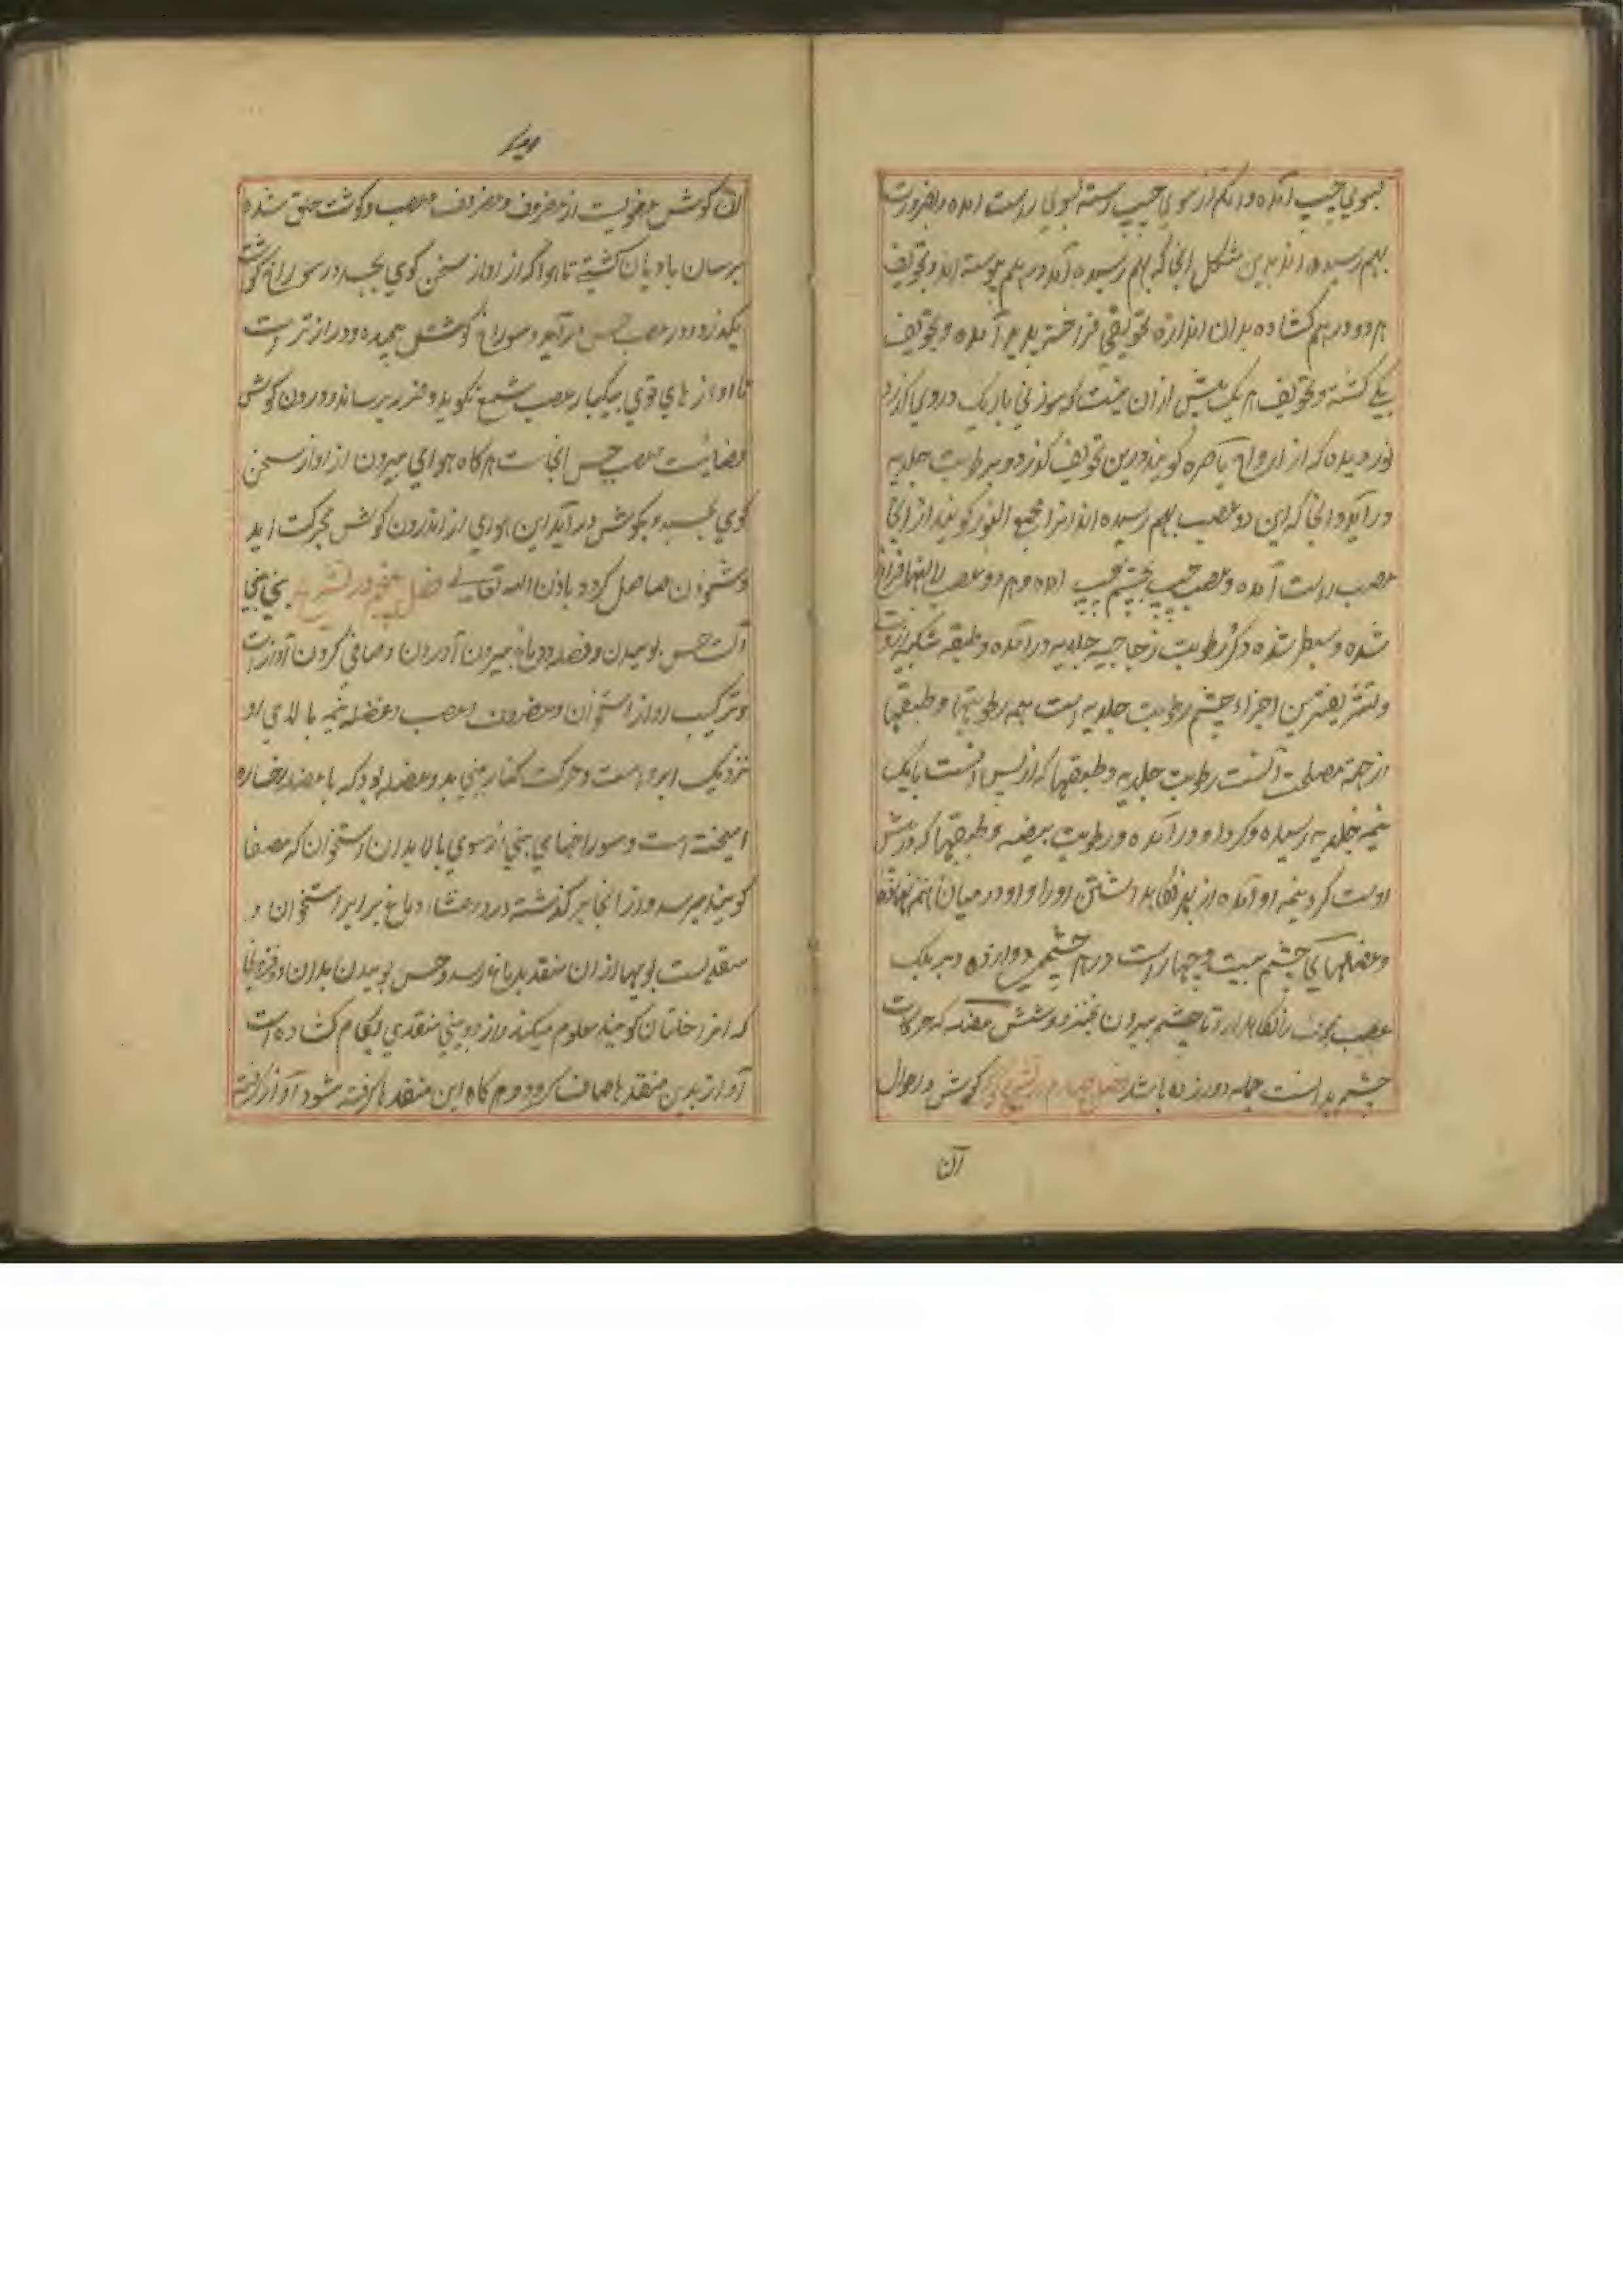 بسوی چپ آمده و انکه از سوی چپ رسته بسوی راست آمده و بضرورت
بهم رسیده اند بدین شکل انجا که بهم رسیده اند در هم پیوسته اند و تجویف
هر دو در هم کشاده بدان اندازه تجویفی فراختر پدید آمده و تجویف
یکی کشته و تجویف هر یک بیش از ان نیست که سوزنی باریک در وی گذرد
نور دیده که از ارواح باصره گویند درین تجویف گذرد و برطوبت جلدیه
در آید و انجا که این دو عصب بهم رسیده اند انرا مجمع النور گویند از انجا
عصب راست آمده و عصب چپ بچشم چپ آمده و هر دو عصب را لبها فراخ
شده و بسیط شده و کرد رطوبت زجاجیه جلدیه در آمده و طبقه شبکیه از وست
و شریفترین اجزاء چشم رطوبت جلدیه است همه رطوبتها و طبقها
از جهة مصلحت آنست رطوبت جلدیه و طبقها که از پس آنست بایک
نیمه جلدیه رسیده و کرد او در آمده و رطوبت بیضه و طبقها که در پیش
اوست کرد نیمه او آمده از بهر نکاهداشتن او را و او در میان
و عضلهای چشم بیست و چهار است در هر چشمی دوازده و بر یک
عصب مجوف را نکاهدارد تا چشم بیرون نخیزد و شش عضله که حرکات
چشم بدانست جمله دوازده باشد فصل چهارم در تشریح گوش و احوال
آن
آن گوش عضویست از غضروف و عصب و گوشت خلق شده
برسان بادبان کشتی تا هوا که از آواز سخن گوی بجنبد در سوراخ گوش
بگذرد و در عصب حس در آید و سوراخ گوش پیچیده و دراز تر است
تا آوازهای قوی بیکبار عصب سمع نکوبد و ضرر برساند و درون گوش
فضائیست عصب حس انجاست هر گاه هوای بیرون از آواز سخن
گوی بجنبد و بگوش در آید این هوای از اندرون گوش بحرکت آید
و شنودن حاصل گردد باذن الله تعالی فصل پنجم در تشریح بینی بینی
آلت حس بوییدن و فضله دماغ بیرون آوردن و صافی کردن آواز است
و ترکیب او از استخوان و غضروف و عصب و عضله نیمه بالای او
نزدیک ابرو است و حرکت کنار بینی بدو عضله بود که با عضله رخساره
آمیخته است و سوراخهای بینی از سوی بالا بدان استخوان که مصفا
گویند میرسد و از انجا بر گذشته در دو غشاء دماغ برابر استخوان و
منفذیست بویها از ان منفذ بدماغ رسد و حس بوییدن بدان
که انرا گویند معلوم میکند و از دو بینی منفذی بکام کشاده است
آواز بدین منفذها صاف گردد و هر گاه این منفذها گرفته شود آواز گرفته